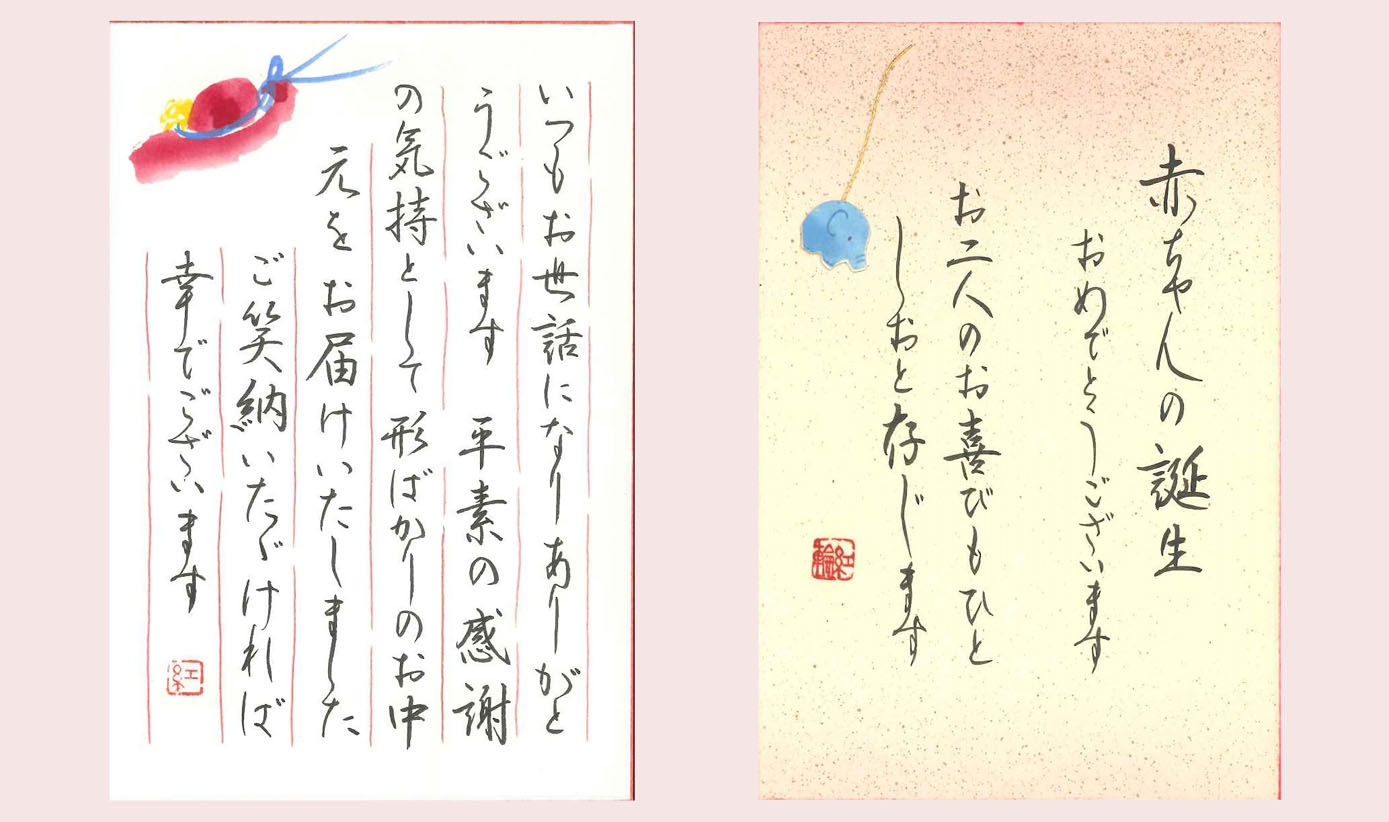 いつもお世話になりありがと
うございます 平素の感謝
の気持として形ばかりのお中
元をお届けいたしました
ご笑納いただければ
幸でございます
紅
赤ちゃんの誕生
おめでとうございます
お二人のお喜びもひと
しおと存じます
紅輪